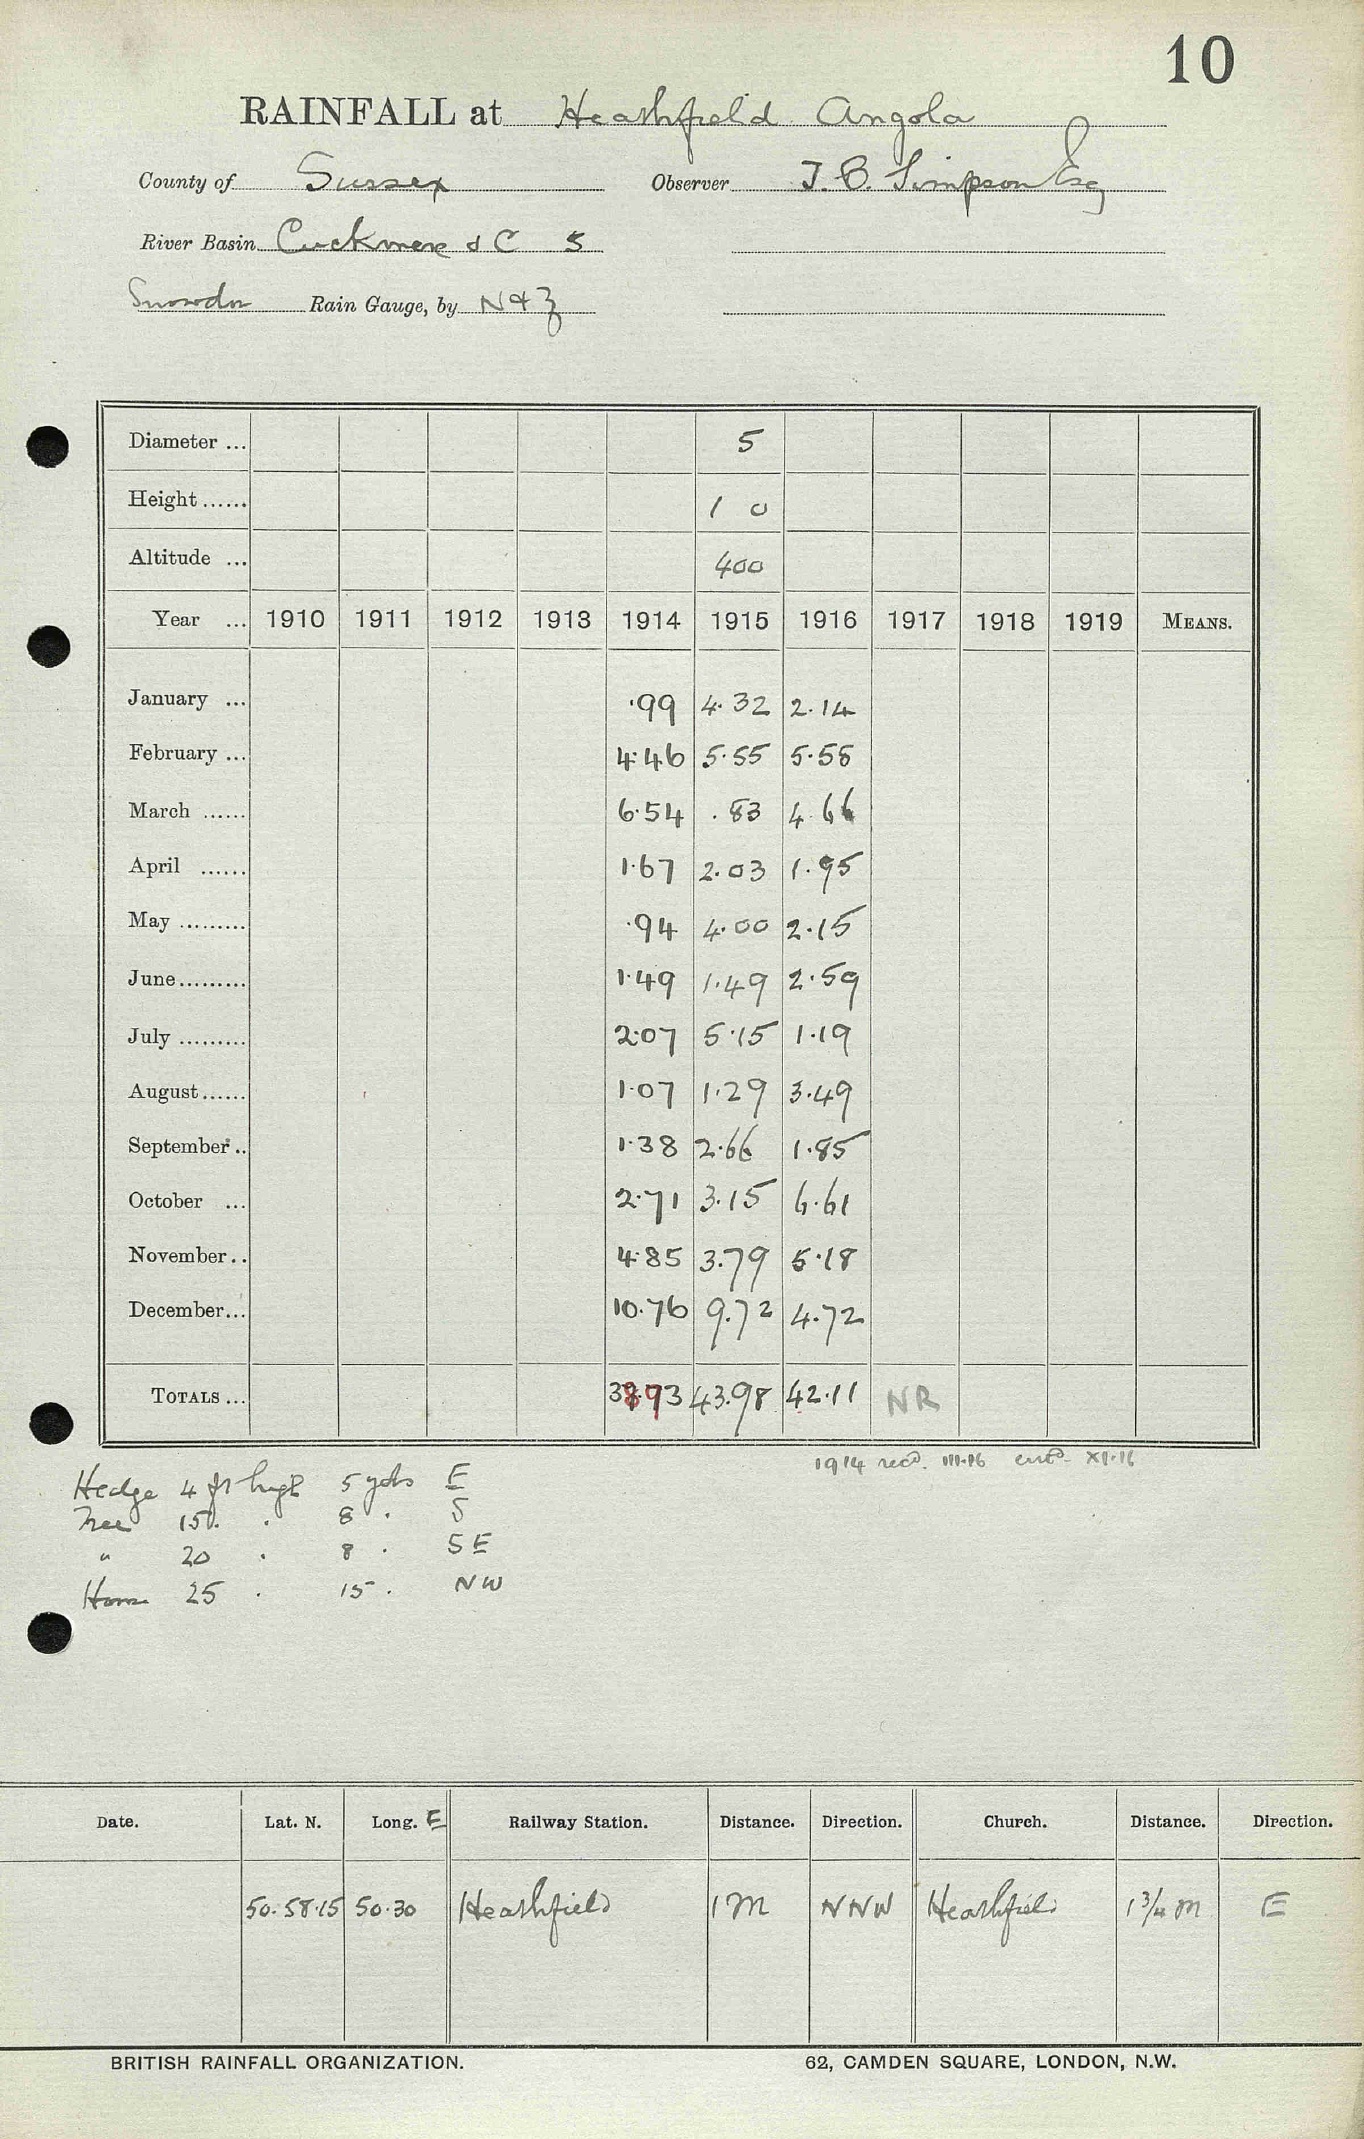 10
RAINFALL at Heathfield Angola
County of Sussex Observer J. C. Simpson Esq
River Basin Cuckmere & C 5
Snowdon Rain Gauge, by N & Z
Diameter ... 5
Height ...... 1 0
Altitude ... 400
Year ... 1910 1911 1912 1913 1914 1915 1916 1917 1918 1919 MEANS.
January ... .99 4.32 2.14
February ... 4.46 5.55 5.58
March ...... 6.54 .83 4.66
April ...... 1.67 2.03 1.95
May ......... .94 4.00 2.15
June......... 1.49 1.49 2.59
July ......... 2.07 5.15 1.19
August...... 1.07 1.29 3.49
September .. 1.38 2.66 1.85
October ... 2.71 3.15 6.61
November .. 4.85 3.79 5.18
December... 10.76 9.72 4.72
TOTALS ... 38.93 43.98 42.11 NR
1914 recd. III.16 entd. XI.16
Hedge 4 ft high 5 yds E
Tree 15 . 8 . S
" 20 . 8 . SE
House 25 . 15 . NW
Date. Lat. N. Long. E Railway Station. Distance. Direction. Church. Distance. Direction.
50.58.15 50.30 Heathfield 1 M NNW Heathfield 1 3/4 M E
BRITISH RAINFALL ORGANIZATION. 62, CAMDEN SQUARE, LONDON, N.W.